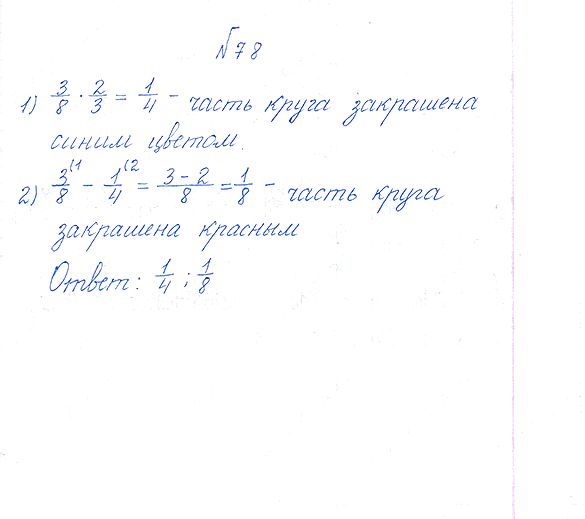 №78
1) 3/8 · 2/3 = 1/4 - часть круга закрашена
синим цветом.
2) 3/8 (1 - 1/4 (2 = 3-2/8 = 1/8 - часть круга
закрашена красным
Ответ: 1/4 ; 1/8